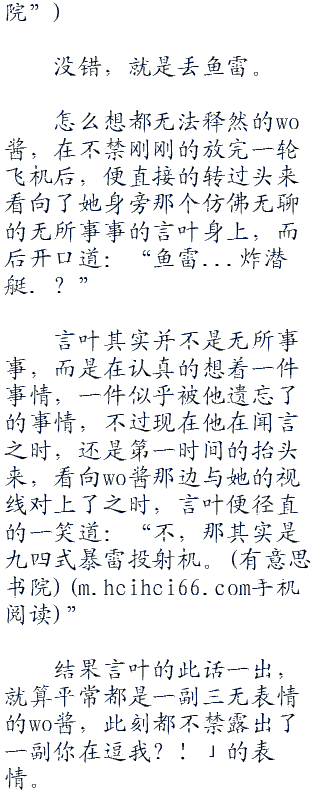 院”)
没错，就是丢鱼雷。
怎么想都无法释然的wo
酱，在不禁刚刚的放完一轮
飞机后，便直接的转过头来
看向了她身旁那个仿佛无聊
的无所事事的言叶身上，而
后开口道：“鱼雷...炸潜
艇.？”
言叶其实并不是无所事
事，而是在认真的想着一件
事情，一件似乎被他遗忘了
的事情，不过现在他在闻言
之时，还是第一时间的抬头
来，看向wo酱那边与她的视
线对上了之时，言叶便径直
的一笑道：“不，那其实是
九四式暴雷投射机。(有意思
书院)(m.hcihci66.com手机
阅读)”
结果言叶的此话一出，
就算平常都是一副三无表情
的wo酱，此刻都不禁露出了
一副你在逗我？！」的表
情。